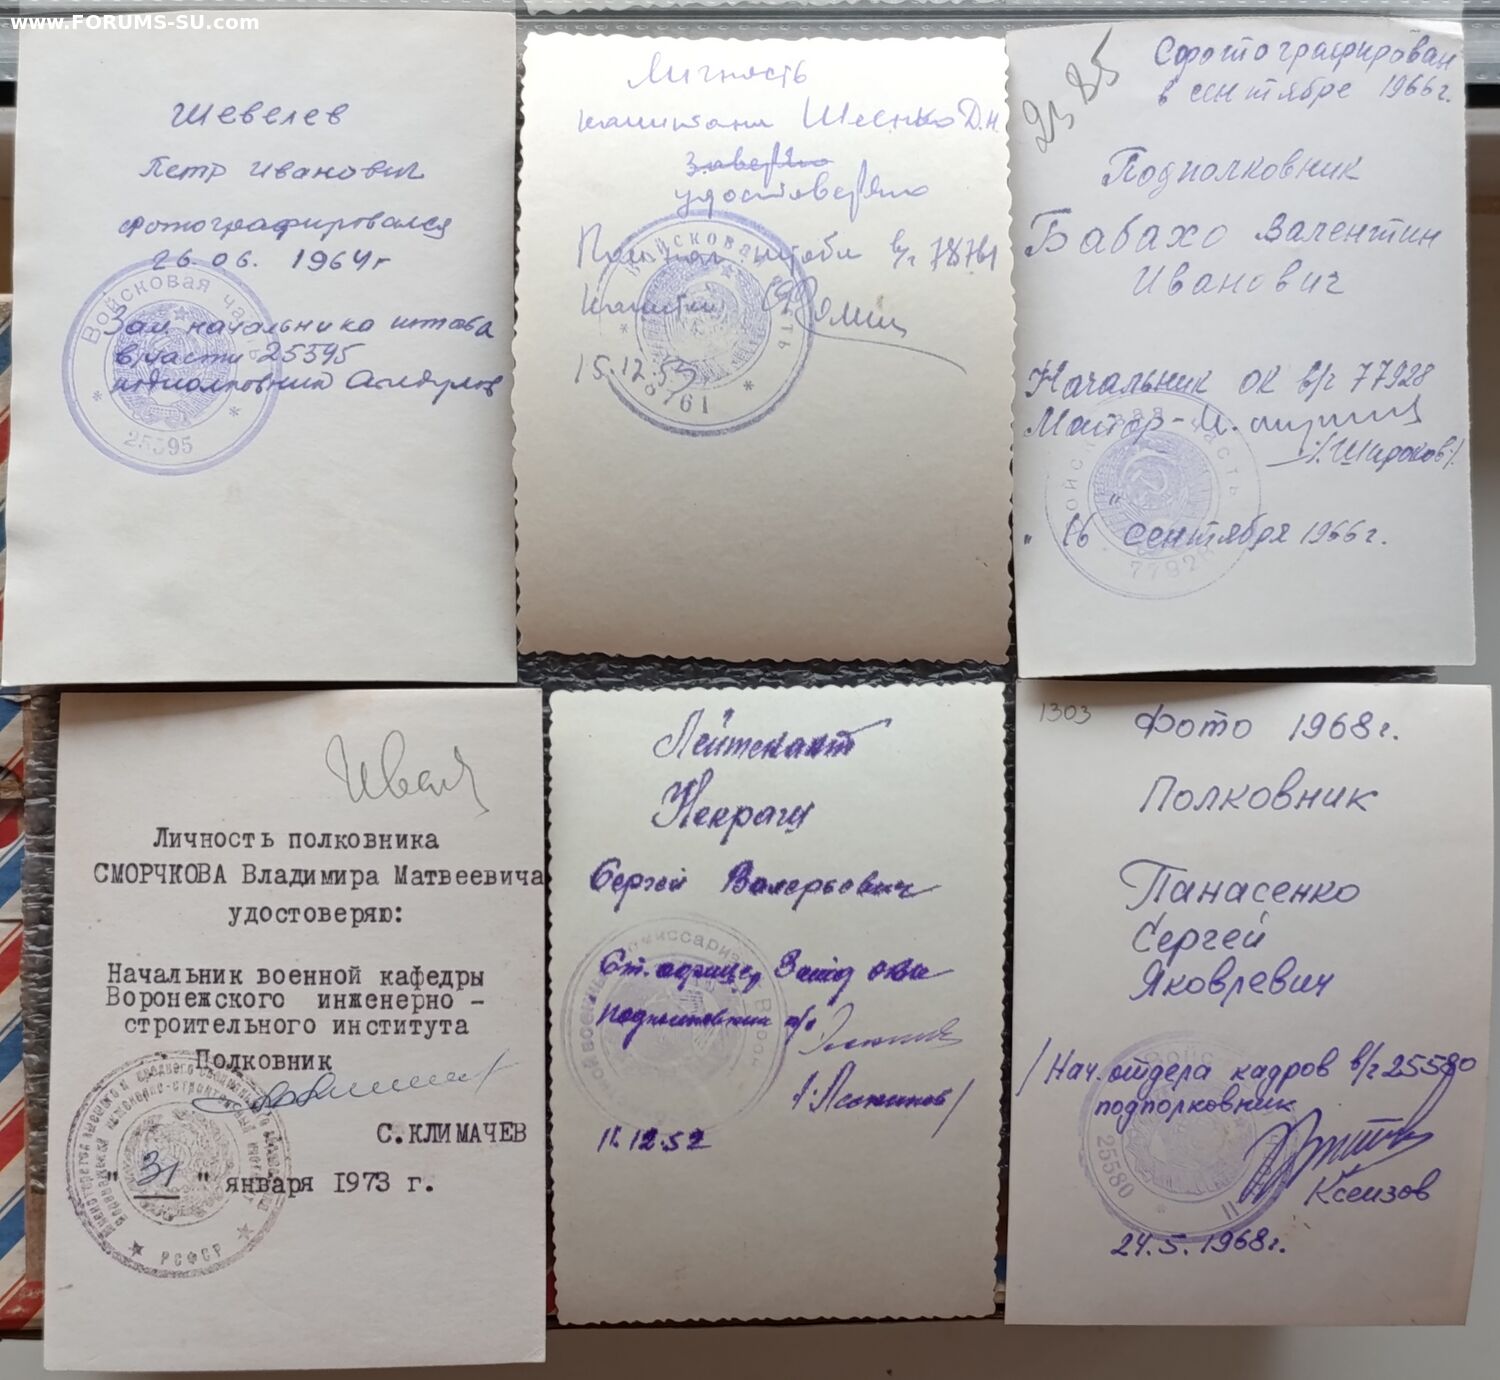 www.FORUMS-SU.com
Шевелев
Петр Иванович
фотографировался
26.06. 1964 г
Зам начальника штаба
в/части 25595
подполковник
Войсковая часть
25595
Личность
капитана Шеенко Д.Н.
заверяю
удостоверяю
Пом нач штаба в/ч 78761
капитан
15.12.53
Войсковая часть
78761
2385
Сфотографирован
в сентябре 1966 г.
Подполковник
Бабахо Валентин
Иванович
Начальник ОК в/ч 77928
Майор
/Широков/
"16" сентября 1966 г.
Войсковая часть
77928
Личность полковника
СМОРЧКОВА Владимира Матвеевича
удостоверяю:
Начальник военной кафедры
Воронежского инженерно-
строительного института
Полковник
С.КЛИМАЧЕВ
"31" января 1973 г.
РСФСР
Лейтенант
Сергей Валерьевич
Ст. офицер
подполковник
11.12.52
1303
Фото 1968 г.
Полковник
Панасенко
Сергей
Яковлевич
/Нач. отдела кадров в/ч 25580
подполковник
Ксензов
24.5.1968 г.
25580